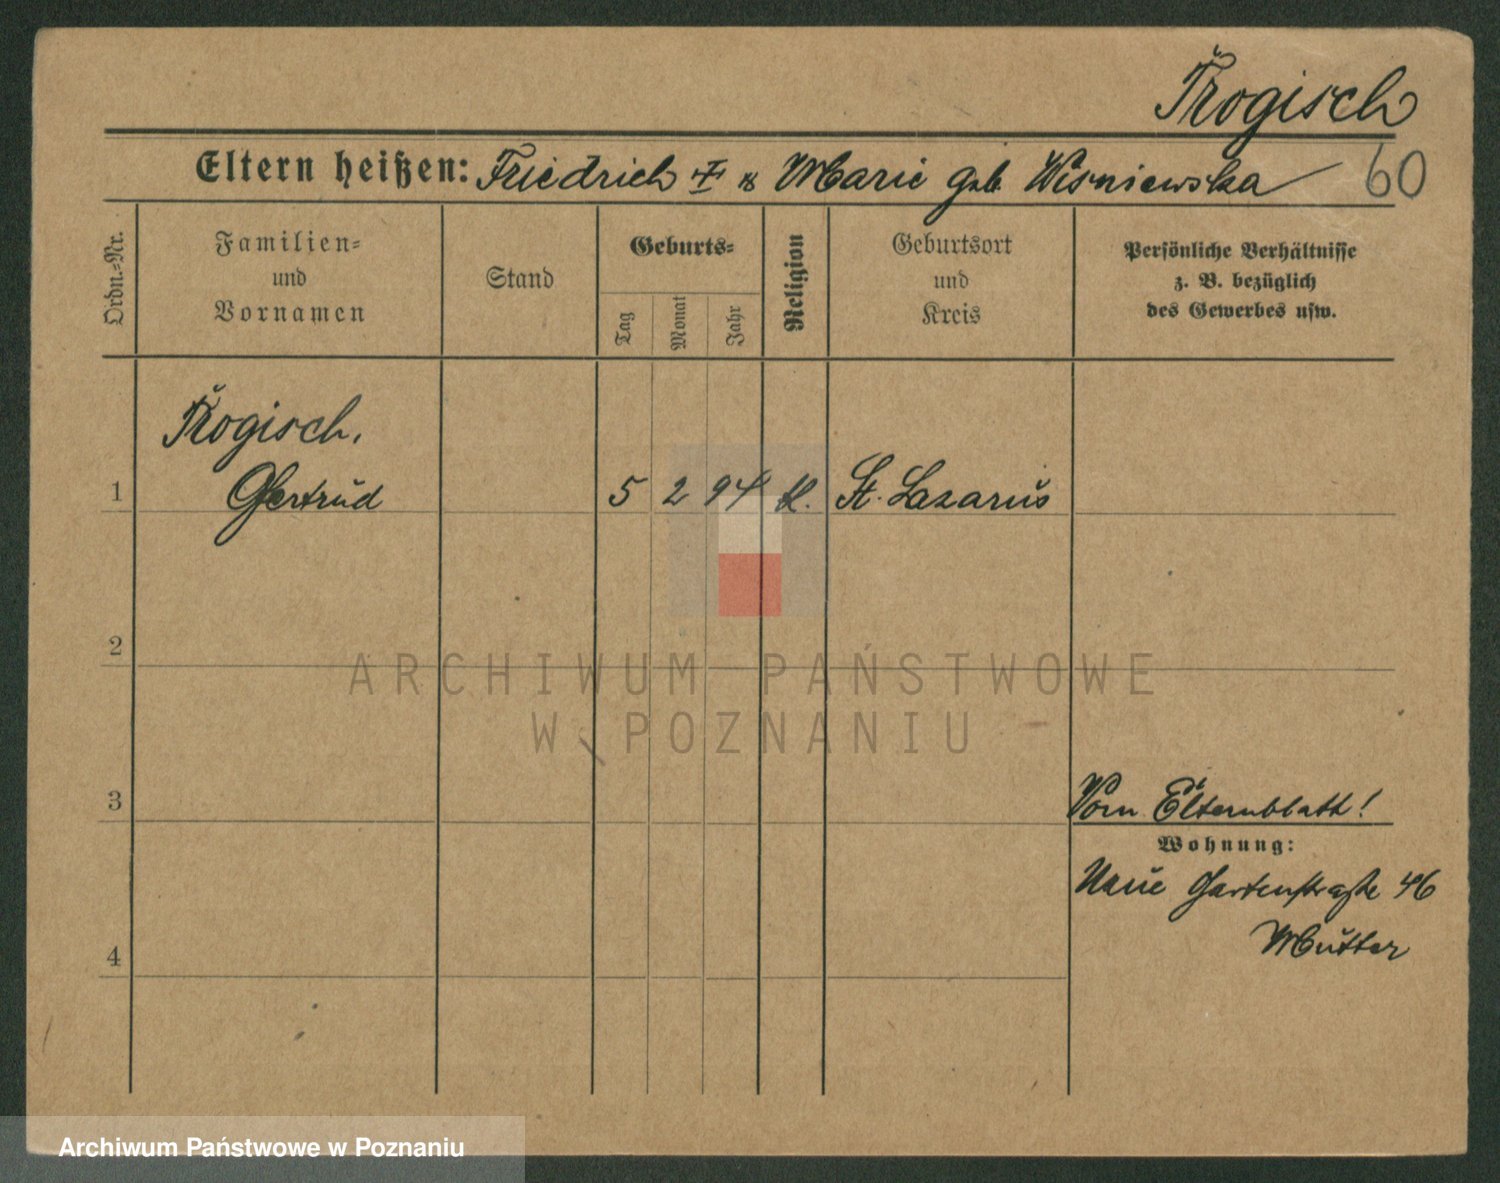 Trogisch
Eltern heißen: Friedrich † & Marie geb. Wisniewska
60
Ordn.=Nr.
Familien=
und
Vornamen
Stand
Geburts=
Tag
Monat
Jahr
Religion
Geburtsort
und
Kreis
Persönliche Verhältnisse
z. B. bezüglich
des Gewerbes usw.
Trogisch,
1 Gertrud 5 2 94 K. St. Lazarus
2
ARCHIWUM PAŃSTWOWE
W POZNANIU
3 Vom Elternblatt!
Wohnung:
Neue Gartenstraße 46
4 Mutter
Archiwum Państwowe w Poznaniu